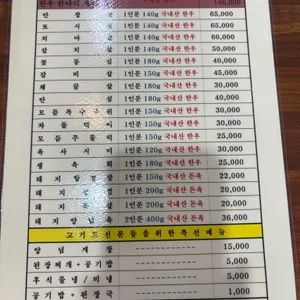 한우 한마리 100,000
안 창 살 1인분 140g 국내산 한우 65,000
토 시 살 1인분 140g 국내산 한우 65,000
치 마 살 1인분 140g 국내산 한우 60,000
살 치 살 1인분 150g 국내산 한우 50,000
꽃 등 심 1인분 180g 국내산 한우 40,000
갈 비 살 1인분 150g 국내산 한우 45,000
채 끝 살 1인분 180g 국내산 한우 35,000
안 심 1인분 180g 국내산 한우 40,000
모 듬 특 수 부 위 1인분 150g 국내산 한우 50,000
차 돌 박 이 1인분 150g 국내산 한우 30,000
모 듬 주 물 럭 1인분 150g 국내산 한우 25,000
육 사 시 미 1인분 120g 국내산 한우 30,000
생 육 회 1인분 180g 국내산 한우 25,000
돼 지 갈 매 기 살 1인분 150g 국내산 돈육 22,000
돼 지 1인분 200g 국내산 돈육 20,000
돼 지 1인분 200g 국내산 돈육 20,000
돼 지 양 념 목 2인분 400g 국내산 돈육 36,000
고기드신분들을위한특선메뉴
양 념 게 장 ------------ 15,000
된장찌개+공기밥 ------------ 5,000
후식물냉/비냉 ------------ 5,000
공기밥+된장국 ------------ 1,000